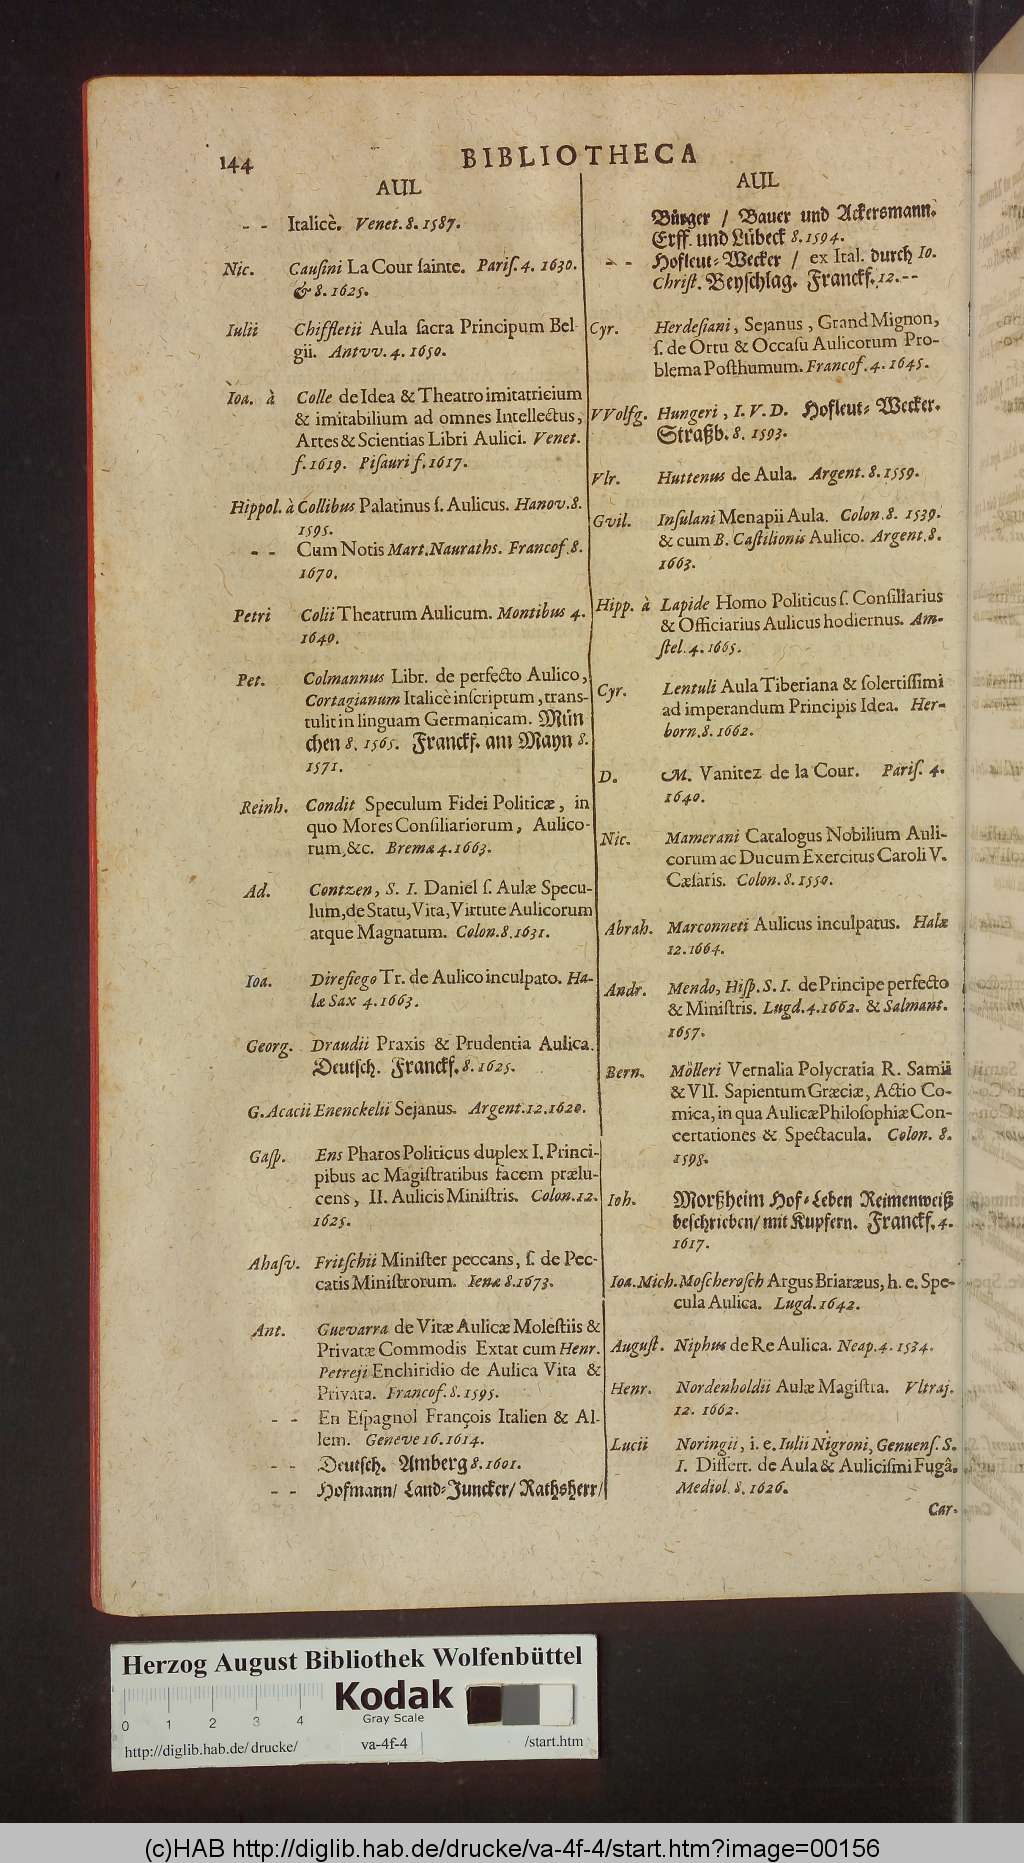 144
BIBLIOTHECA
AUL
- - Italicè. Venet. 8. 1587.
Nic. Cauſini La Cour ſainte. Pariſ. 4. 1630.
& 8. 1625.
Iulii Chiffletii Aula ſacra Principum Bel-
gii. Antvv. 4. 1650.
Ioa. à Colle de Idea & Theatro imitatricium
& imitabilium ad omnes Intellectus,
Artes & Scientias Libri Aulici. Venet.
f. 1619. Piſauri f. 1617.
Hippol. à Collibus Palatinus ſ. Aulicus. Hanov. 8.
1595.
- - Cum Notis Mart. Naurathſ. Francof. 8.
1670.
Petri Colii Theatrum Aulicum. Montibus 4.
1640.
Pet. Colmannus Libr. de perfecto Aulico,
Cortagianum Italicè inſcriptum, trans-
tulit in linguam Germanicam. Mün
chen 8. 1565. Franckf. am Mayn 8.
1571.
Reinh. Condit Speculum Fidei Politicæ, in
quo Mores Conſiliariorum, Aulico-
rum, &c. Bremæ 4. 1663.
Ad. Contzen, S. I. Daniel ſ. Aulæ Specu-
lum, de Statu, Vita, Virtute Aulicorum
atque Magnatum. Colon. 8. 1631.
Ioa. Direſiego Tr. de Aulico inculpato. Ha-
læ Sax 4. 1663.
Georg. Draudii Praxis & Prudentia Aulica.
Deutſch. Franckf. 8. 1625.
G. Acacii Enenckelii Sejanus. Argent. 12. 1620.
Gaſp. Ens Pharos Politicus duplex I. Princi-
pibus ac Magiſtratibus facem prælu-
cens, II. Aulicis Miniſtris. Colon. 12.
1625.
Ahaſv. Fritſchii Miniſter peccans, ſ. de Pec-
catis Miniſtrorum. Ienæ 8. 1673.
Ant. Guevarra de Vitæ Aulicæ Moleſtiis &
Privatæ Commodis Extat cum Henr.
Petreji Enchiridio de Aulica Vita &
Privata. Francof. 8. 1595.
- - En Eſpagnol François Italien & Al-
lem. Geneve 16. 1614.
- - Deutſch. Amberg 8. 1601.
- - Hofmann/ Land-Juncker/ Rathsherr/
AUL
Bürger / Bauer und Ackersmann.
Erff. und Lübeck 8. 1594.
- - Hofleut-Wecker / ex Ital. durch Io.
Chriſt. Beyſchlag. Franckf. 12. --
Cyr. Herdeſiani, Sejanus, Grand Mignon,
ſ. de Ortu & Occaſu Aulicorum Pro-
blema Poſthumum. Francof. 4. 1645.
VVolfg. Hungeri, I. V. D. Hofleut-Wecker.
Straßb. 8. 1593.
Vlr. Huttenus de Aula. Argent. 8. 1559.
Gvil. Inſulani Menapii Aula. Colon. 8. 1539.
& cum B. Caſtilionis Aulico. Argent. 8.
1663.
Hipp. à Lapide Homo Politicus ſ. Conſiliarius
& Officiarius Aulicus hodiernus. Am-
ſtel. 4. 1665.
Cyr. Lentuli Aula Tiberiana & ſolertiſſimi
ad imperandum Principis Idea. Her-
born. 8. 1662.
D. M. Vanitez de la Cour. Pariſ. 4.
1640.
Nic. Mamerani Catalogus Nobilium Auli-
corum ac Ducum Exercitus Caroli V.
Cæſaris. Colon. 8. 1550.
Abrah. Marconneti Aulicus inculpatus. Halæ
12. 1664.
Andr. Mendo, Hiſp. S. I. de Principe perfecto
& Miniſtris. Lugd. 4. 1662. & Salmant.
1657.
Bern. Mölleri Vernalia Polycratia R. Samii
& VII. Sapientum Græciæ, Actio Co-
mica, in qua Aulicæ Philoſophiæ Con-
certationes & Spectacula. Colon. 8.
1598.
Ioh. Morßheim Hof-Leben Reimenweiß
beſchrieben/ mit Kupfern. Franckf. 4.
1617.
Ioa. Mich. Moſcheroſch Argus Briaræus, h. e. Spe-
cula Aulica. Lugd. 1642.
Auguſt. Niphus de Re Aulica. Neap. 4. 1534.
Henr. Nordenholdii Aulæ Magiſtra. Vltraj.
12. 1662.
Lucii Noringii, i. e. Iulii Nigroni, Genuenſ. S.
I. Diſſert. de Aula & Auliciſmi Fugâ.
Mediol. 8. 1626.
Car-
Herzog August Bibliothek Wolfenbüttel
0 1 2 3 4
Kodak
Gray Scale
http://diglib.hab.de/ drucke/ va-4f-4 /start.htm
(c)HAB http://diglib.hab.de/drucke/va-4f-4/start.htm?image=00156